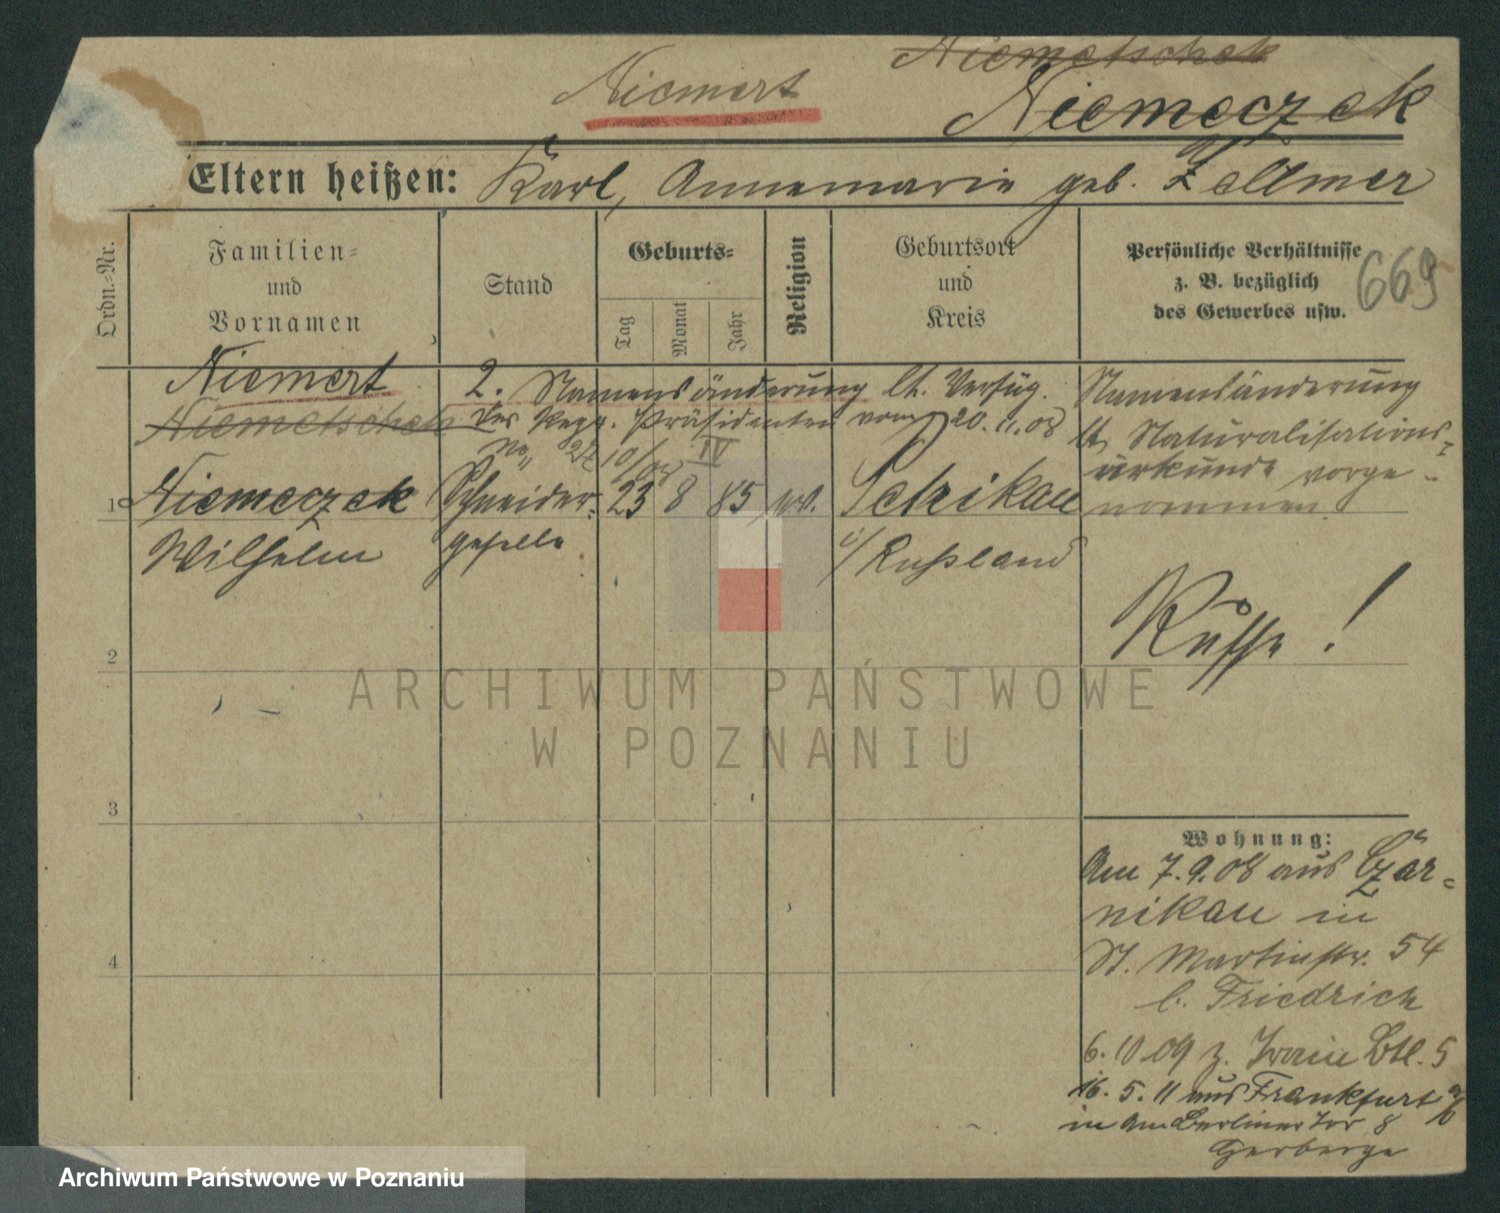 Niemetschek
Niemert Niemeczek
Eltern heißen: Karl, Annemarie geb. Zellmer
Ordn.-Nr.
Familien-
und
Vornamen
Stand
Geburts-
Tag
Monat
Jahr
Religion
Geburtsort
und
Kreis
Persönliche Verhältnisse
z. B. bezüglich
des Gewerbes usw.
669
Niemert
Niemetschek
1 Niemeczek
Wilhelm
2. Namensänderung lt. Verfüg.
des Regr. Präsidenten vom 20.11.08
IV
Schneider-
geselle
23 8 85
Petrikau
i/Russland
Namensänderung
lt. Naturalisations-
urkunde vorge-
nommen.
Russe!
2
3
4
Wohnung:
Am 7.9.08 aus Czar-
nikau in
St. Martinstr. 54
b. Friedrich
6.10.09 z. Train Btl. 5
16.5.11 aus Frankfurt a/O
in Am Berliner Tor 8
Herberge
ARCHIWUM PAŃSTWOWE
W POZNANIU
Archiwum Państwowe w Poznaniu